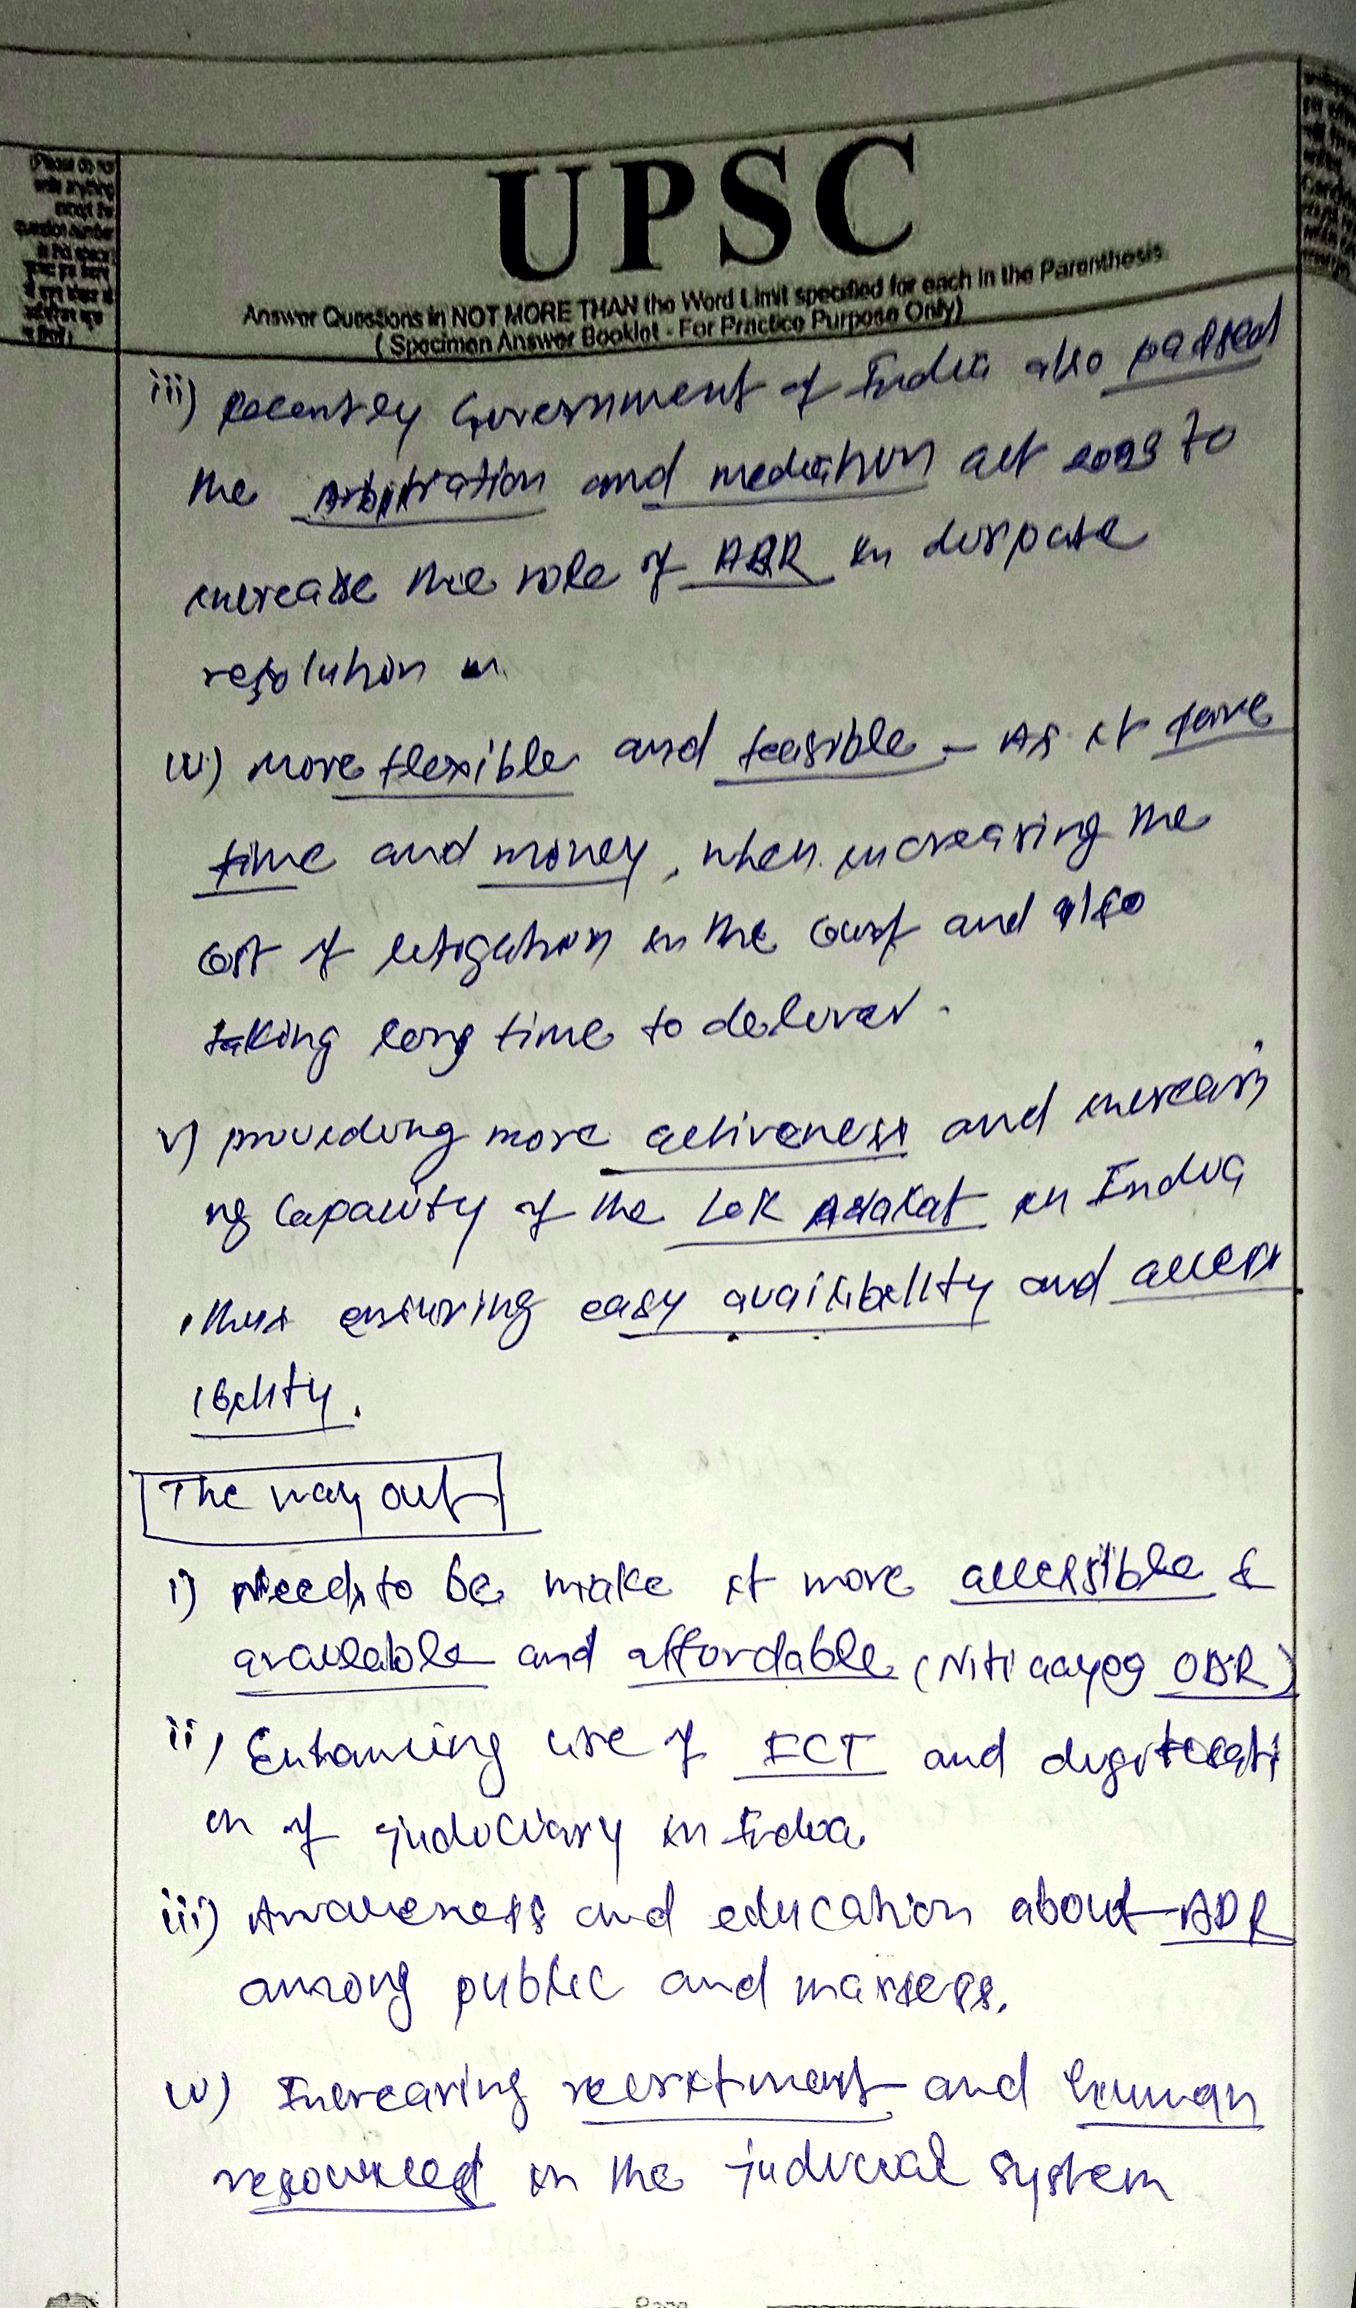 (Please do not
write anything
except the
question number
in this space)
UPSC
Answer Questions in NOT MORE THAN the Word Limit specified for each in the Parenthesis.
( Specimen Answer Booklet - For Practice Purpose Only)
iii) Recently Government of India also passed
the Arbitration and mediation act 2023 to
increase the role of ADR in dispute
resolution
iv) More flexible and feasible - As it save
time and money, when increasing the
cost of litigation in the court and also
taking long time to deliver.
v) providing more activeness and increasi
ng capacity of the Lok Adalat in India
, thus ensuring easy availibility and access
ibility.
The way out
i) Needs to be make it more accessible &
available and affordable (Niti aayog ODR)
ii) Enhancing use of ICT and digitizati
on of judiciary in India
iii) Awareness and education about ADR
among public and masses.
iv) Increasing recruitment and human
resources in the judicial system
Page